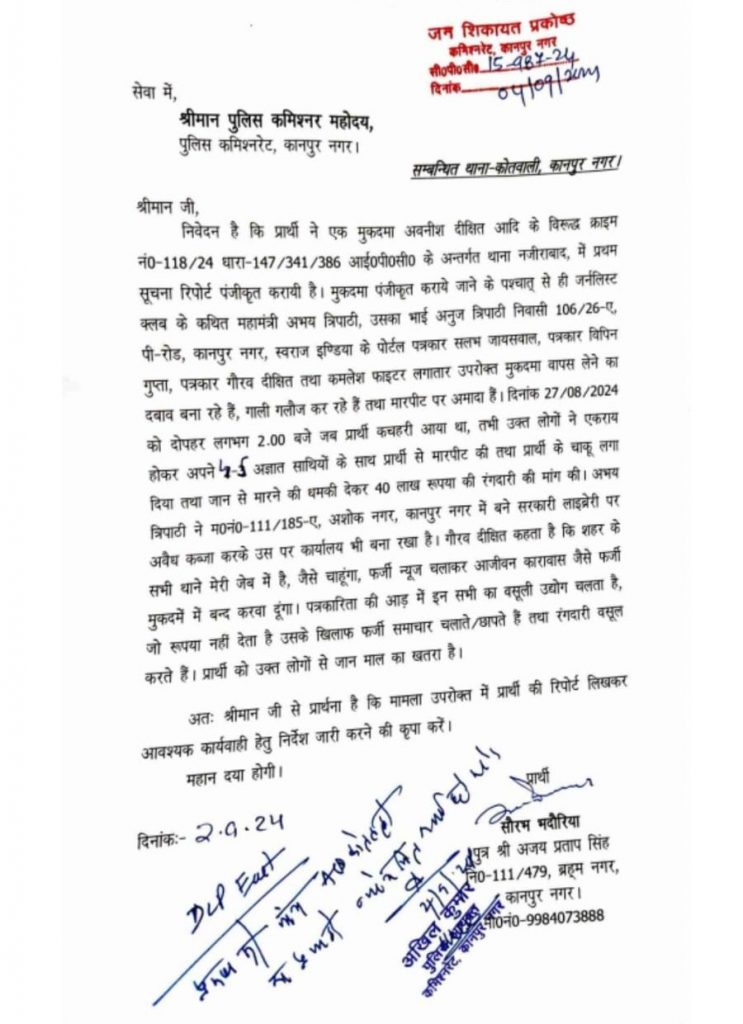 जन शिकायत प्रकोष्ठ
कमिश्नरेट, कानपुर नगर
सी0पी0सी0 15-987-24
दिनांक 04/09/2024
सेवा में,
श्रीमान पुलिस कमिश्नर महोदय,
पुलिस कमिश्नरेट, कानपुर नगर।
सम्बन्धित थाना-कोतवाली, कानपुर नगर।
श्रीमान जी,
निवेदन है कि प्रार्थी ने एक मुकदमा अवनीश दीक्षित आदि के विरूद्ध क्राइम
नं0-118/24 धारा-147/341/386 आई0पी0सी0 के अन्तर्गत थाना नजीराबाद, में प्रथम
सूचना रिपोर्ट पंजीकृत करायी है। मुकदमा पंजीकृत कराये जाने के पश्चात् से ही जर्नलिस्ट
क्लब के कथित महामंत्री अभय त्रिपाठी, उसका भाई अनुज त्रिपाठी निवासी 106/26-ए,
पी-रोड, कानपुर नगर, स्वराज इण्डिया के पोर्टल पत्रकार सलभ जायसवाल, पत्रकार विपिन
गुप्ता, पत्रकार गौरव दीक्षित तथा कमलेश फाइटर लगातार उपरोक्त मुकदमा वापस लेने का
दबाव बना रहे हैं, गाली गलौज कर रहे हैं तथा मारपीट पर अमादा हैं। दिनांक 27/08/2024
को दोपहर लगभग 2.00 बजे जब प्रार्थी कचहरी आया था, तभी उक्त लोगों ने एकराय
होकर अपने 4-5 अज्ञात साथियों के साथ प्रार्थी से मारपीट की तथा प्रार्थी के चाकू लगा
दिया तथा जान से मारने की धमकी देकर 40 लाख रूपया की रंगदारी की मांग की। अभय
त्रिपाठी ने म0नं0-111/185-ए, अशोक नगर, कानपुर नगर में बने सरकारी लाइब्रेरी पर
अवैध कब्जा करके उस पर कार्यालय भी बना रखा है। गौरव दीक्षित कहता है कि शहर के
सभी थाने मेरी जेब में है, जैसे चाहूंगा, फर्जी न्यूज चलाकर आजीवन कारावास जैसे फर्जी
मुकदमें में बन्द करवा दूंगा। पत्रकारिता की आड़ में इन सभी का वसूली उद्योग चलता है,
जो रूपया नहीं देता है उसके खिलाफ फर्जी समाचार चलाते/छापते हैं तथा रंगदारी वसूल
करते हैं। प्रार्थी को उक्त लोगों से जान माल का खतरा है।
अतः श्रीमान जी से प्रार्थना है कि मामला उपरोक्त में प्रार्थी की रिपोर्ट लिखकर
आवश्यक कार्यवाही हेतु निर्देश जारी करने की कृपा करें।
महान दया होगी।
दिनांकः- 2.9.24
प्रार्थी
सौरभ भदौरिया
पुत्र श्री अजय प्रताप सिंह
नि0-111/479, ब्रह्म नगर,
कानपुर नगर।
मो0नं0-9984073888
DCP East
अखिल कुमार
पुलिस आयुक्त
कमिश्नरेट, कानपुर नगर